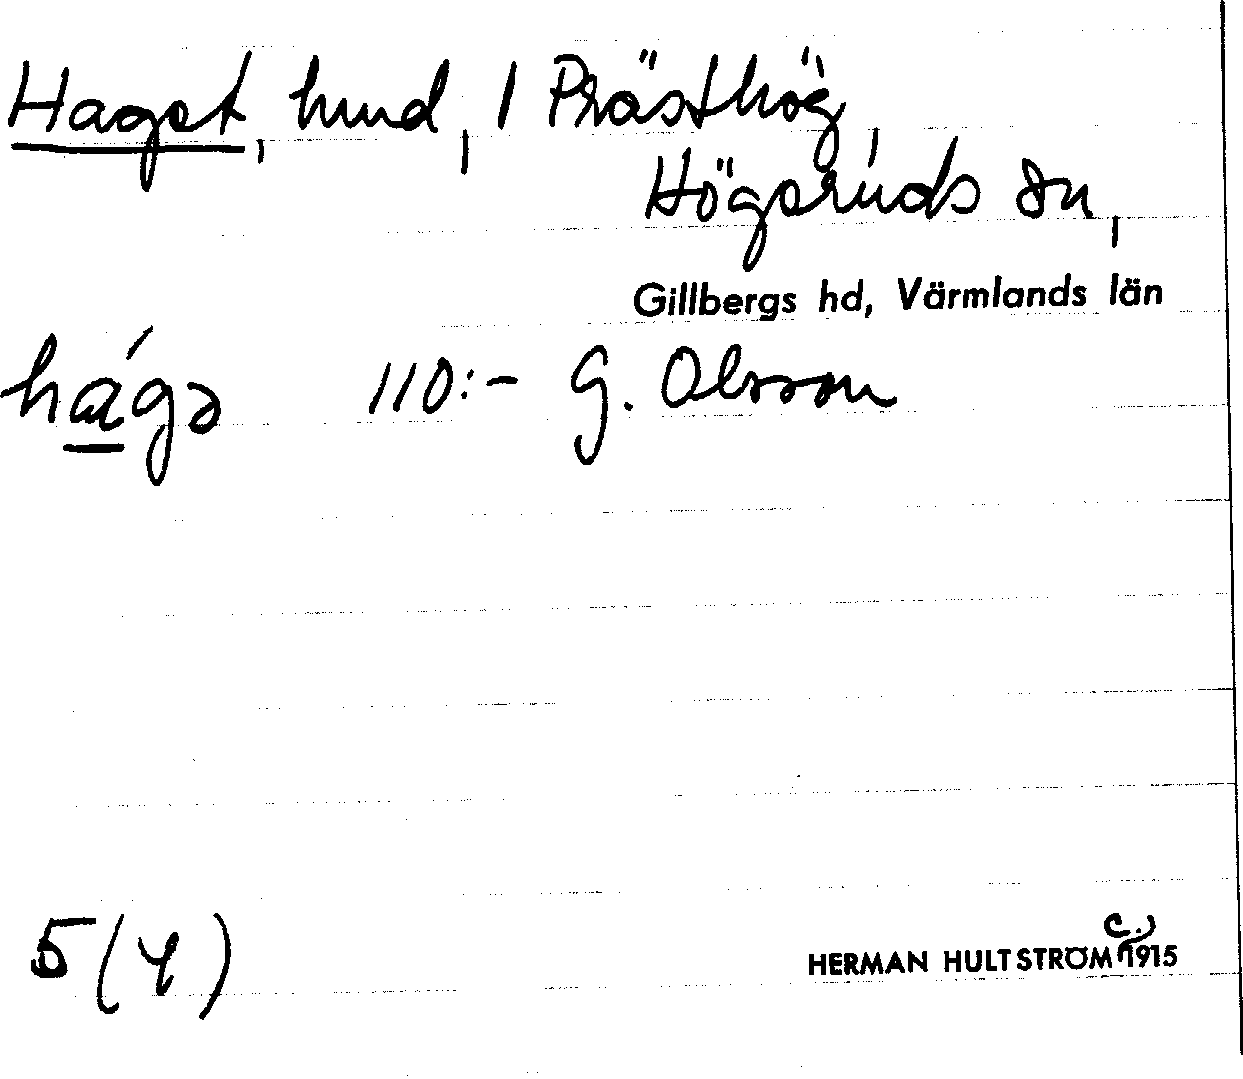 Haget, hmd, 1 Prästhög,
Högsruds sn,
Gillbergs hd, Värmlands län
há̱gə 110:- G. Olsson
5(4)
HERMAN HULTSTRÖM c. 1915